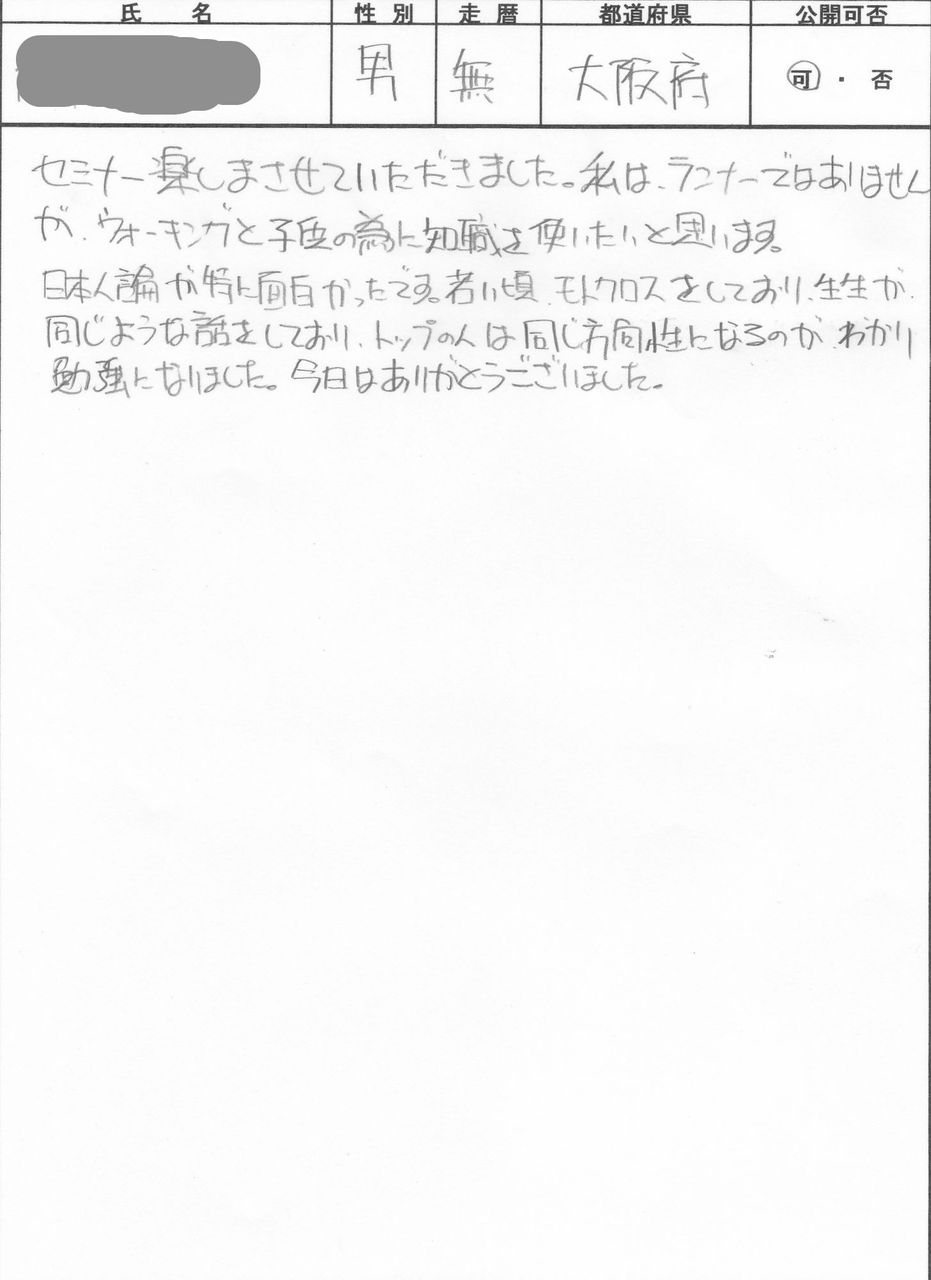 氏 名 性 別 走 暦 都道府県 公開可否
男 無 大阪府 可 ・ 否
セミナー楽しまさせていただきました。私は、ランナーではありません
が、ウォーキングと子供の為に知識を使いたいと思います。
日本人論が特に面白かったです。若い頃、モトクロスをしており、生生が、
同じような話をしており、トップの人は同じ方向性になるのが、わかり
勉強になりました。今日はありがとうございました。